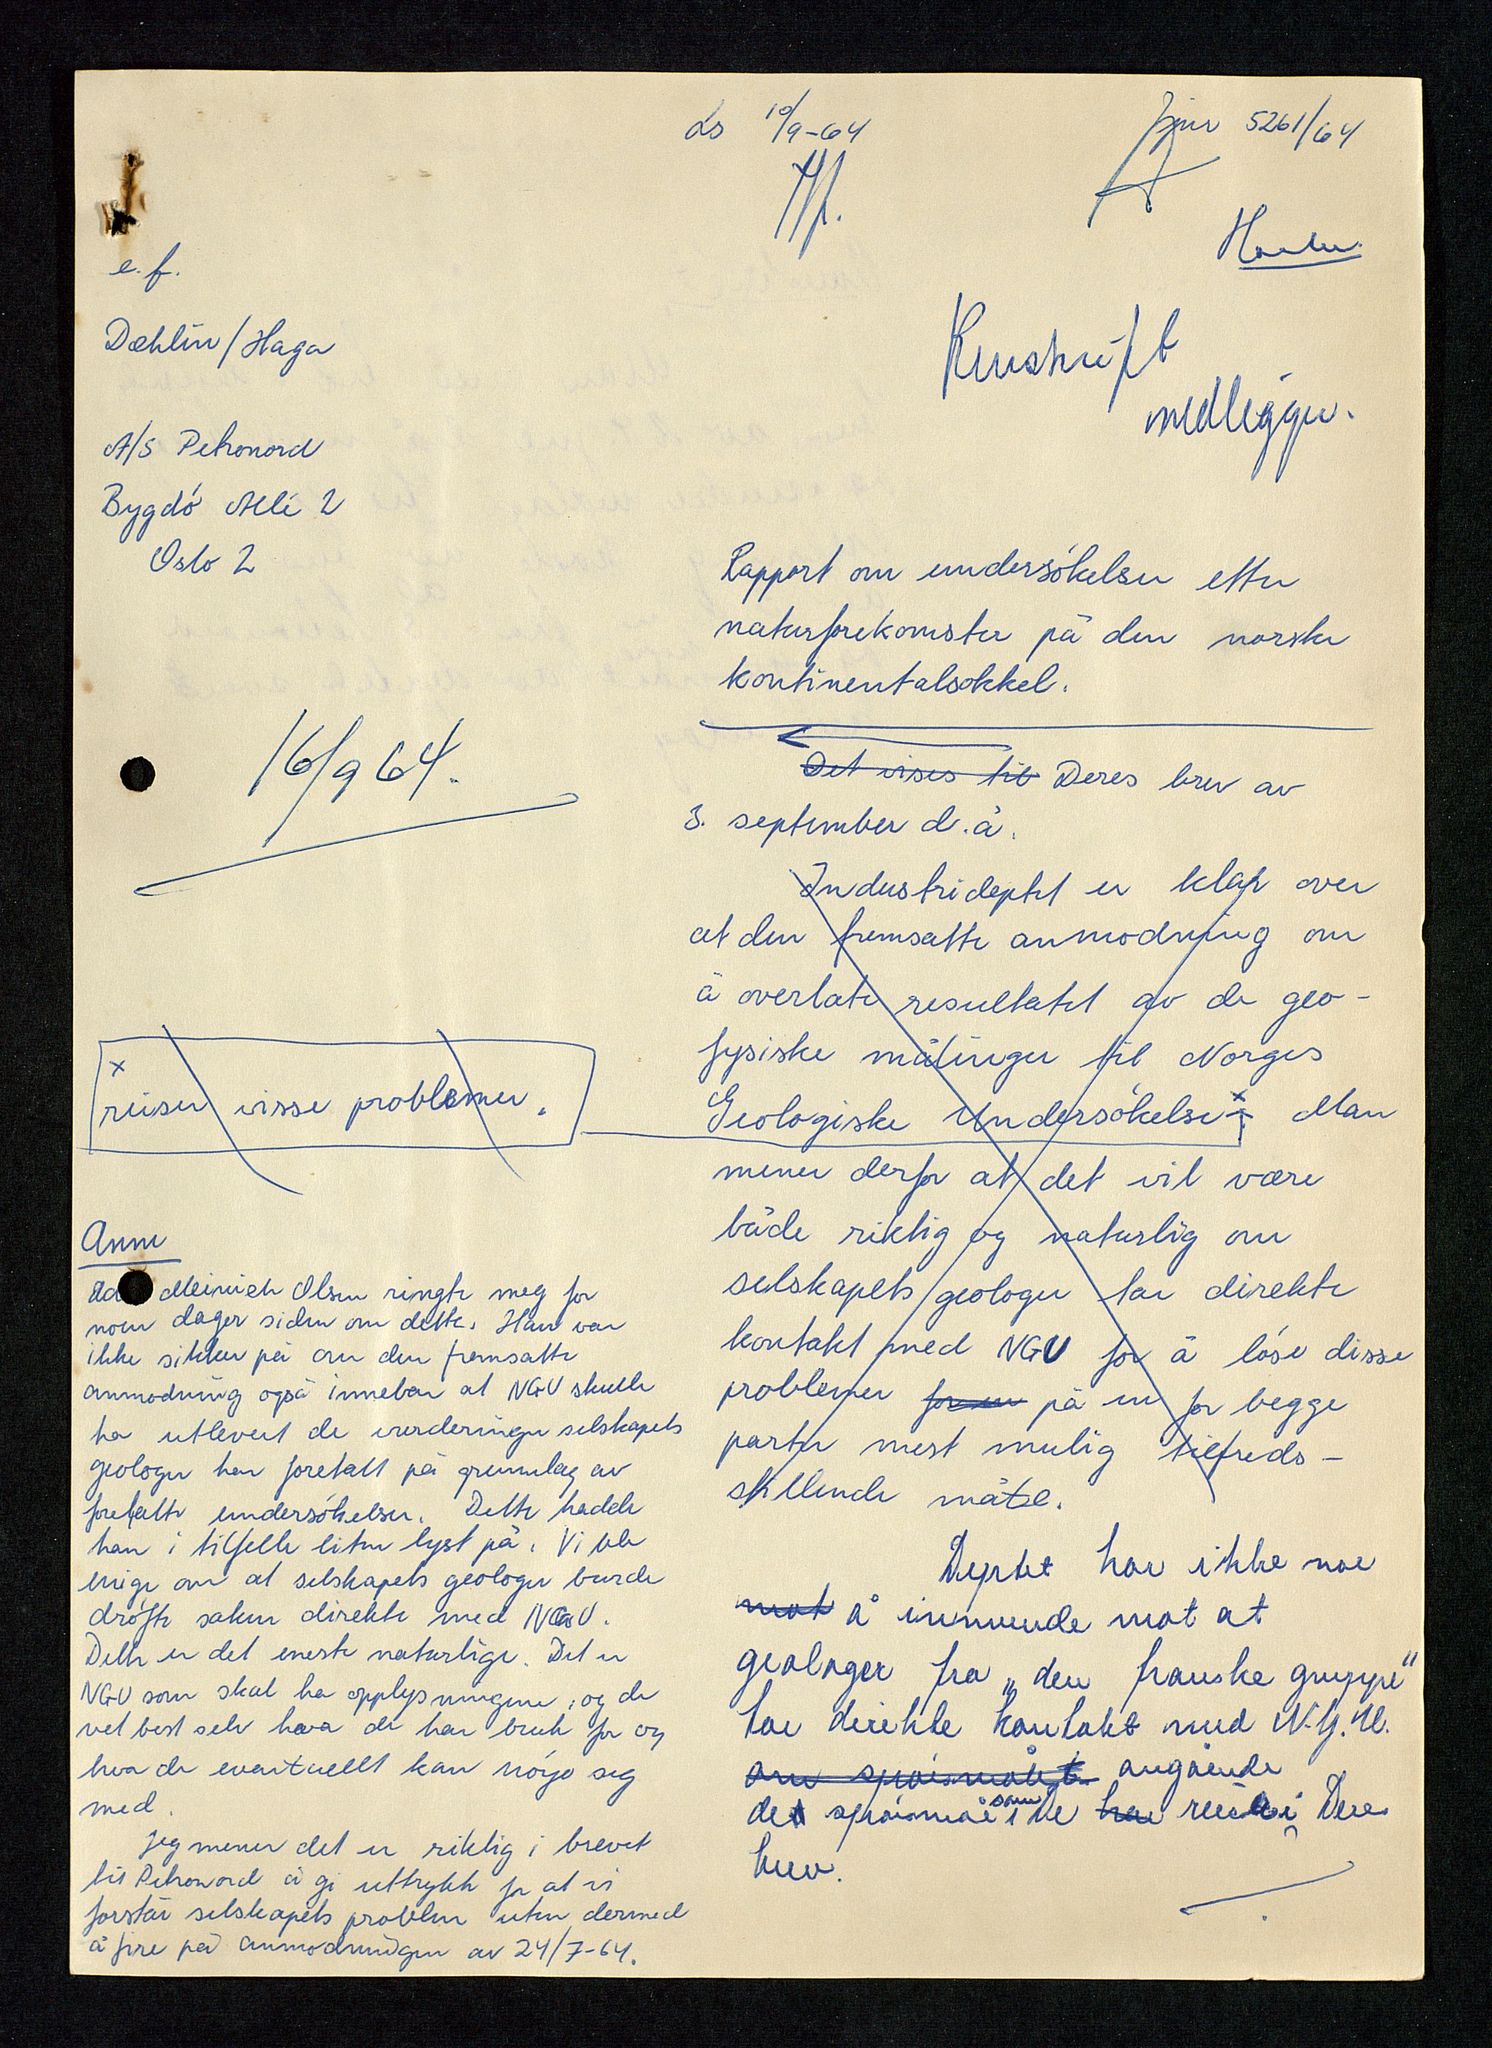 Ls 10/9-64
Jnr 5261/64
e.f.
Dæhlin/Haga
Renskrift
medlegges.
A/S Petronord
Bygdö Allé 2
Oslo 2
Rapport om undersökelser etter
naturforekomster på den norske
kontinentalsokkel.
16/9 64.
Det vises til Deres brev av
3. september d.å.
Industrideptet er klar over
at den fremsatte anmodning om
å overlate resultatet av de geo-
fysiske målinger til Norges
Geologiske Undersökelse x. Man
mener derfor at det vil være
både riktig og naturlig om
selskapets geologer tar direkte
kontakt med NGU for å löse disse
problemer på en for begge
parter mest mulig tilfreds-
stillende måte.
x
reiser visse problemer.
Deptet har ikke noe
mot å innvende mot at
geologer fra "den franske gruppe"
tar direkte kontakt med N.G.U.
om spörsmålet angående
det spörsmål som De har reist i Deres
brev.
Anm
Meinich Olsen ringte meg for
noen dager siden om dette. Han var
ikke sikker på om den fremsatte
anmodning også innebar at NGU skulle
ha utlevert de vurderinger selskapets
geologer har foretatt på grunnlag av
foretatte undersökelser. Dette hadde
han i tilfelle liten lyst på. Vi ble
enige om at selskapets geologer burde
dröfte saken direkte med NGU.
Dette er det eneste naturlige. Det er
NGU som skal ha opplysningene, og de
vet best selv hva de har bruk for og
hva de eventuellt kan nöye seg
med.
Jeg mener det er riktig i brevet
til Petronord å gi uttrykk for at vi
forstår selskapets problem uten dermed
å fire på anmodningen av 24/7-64.